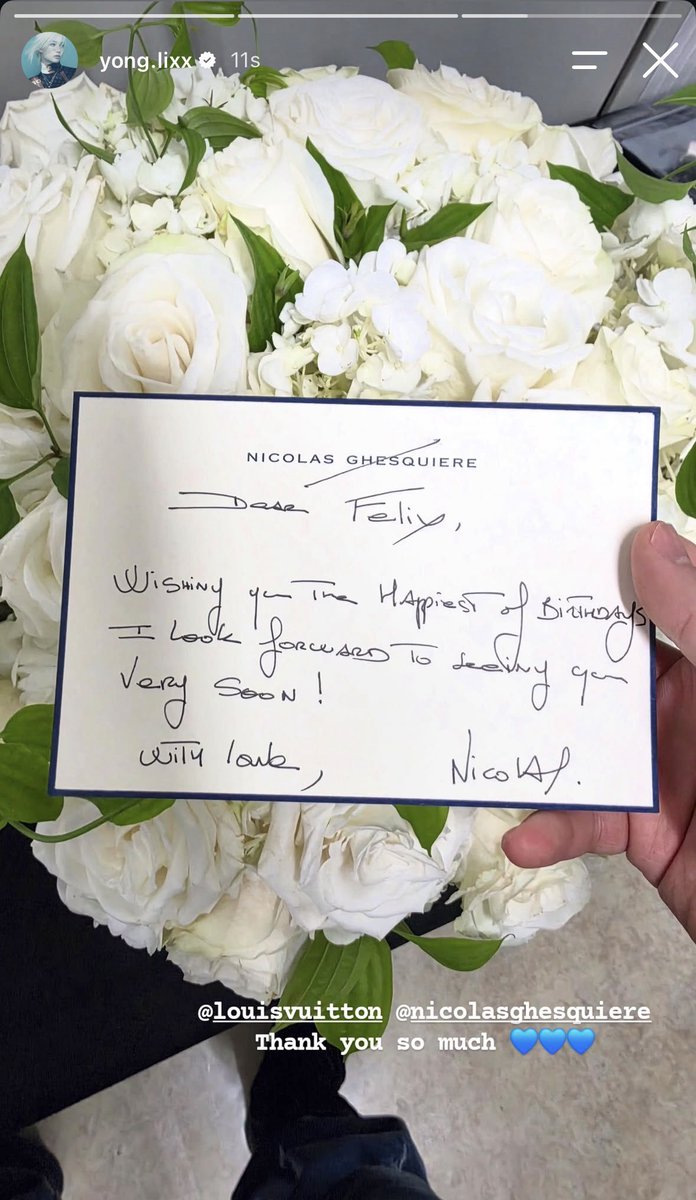 yong.lixx 11s
NICOLAS GHESQUIERE
Dear Felix,
Wishing you The Happiest of Birthdays
I look forward to seeing you
very soon!
with love,
Nicolas.
@louisvuitton @nicolasghesquiere
Thank you so much 💙💙💙